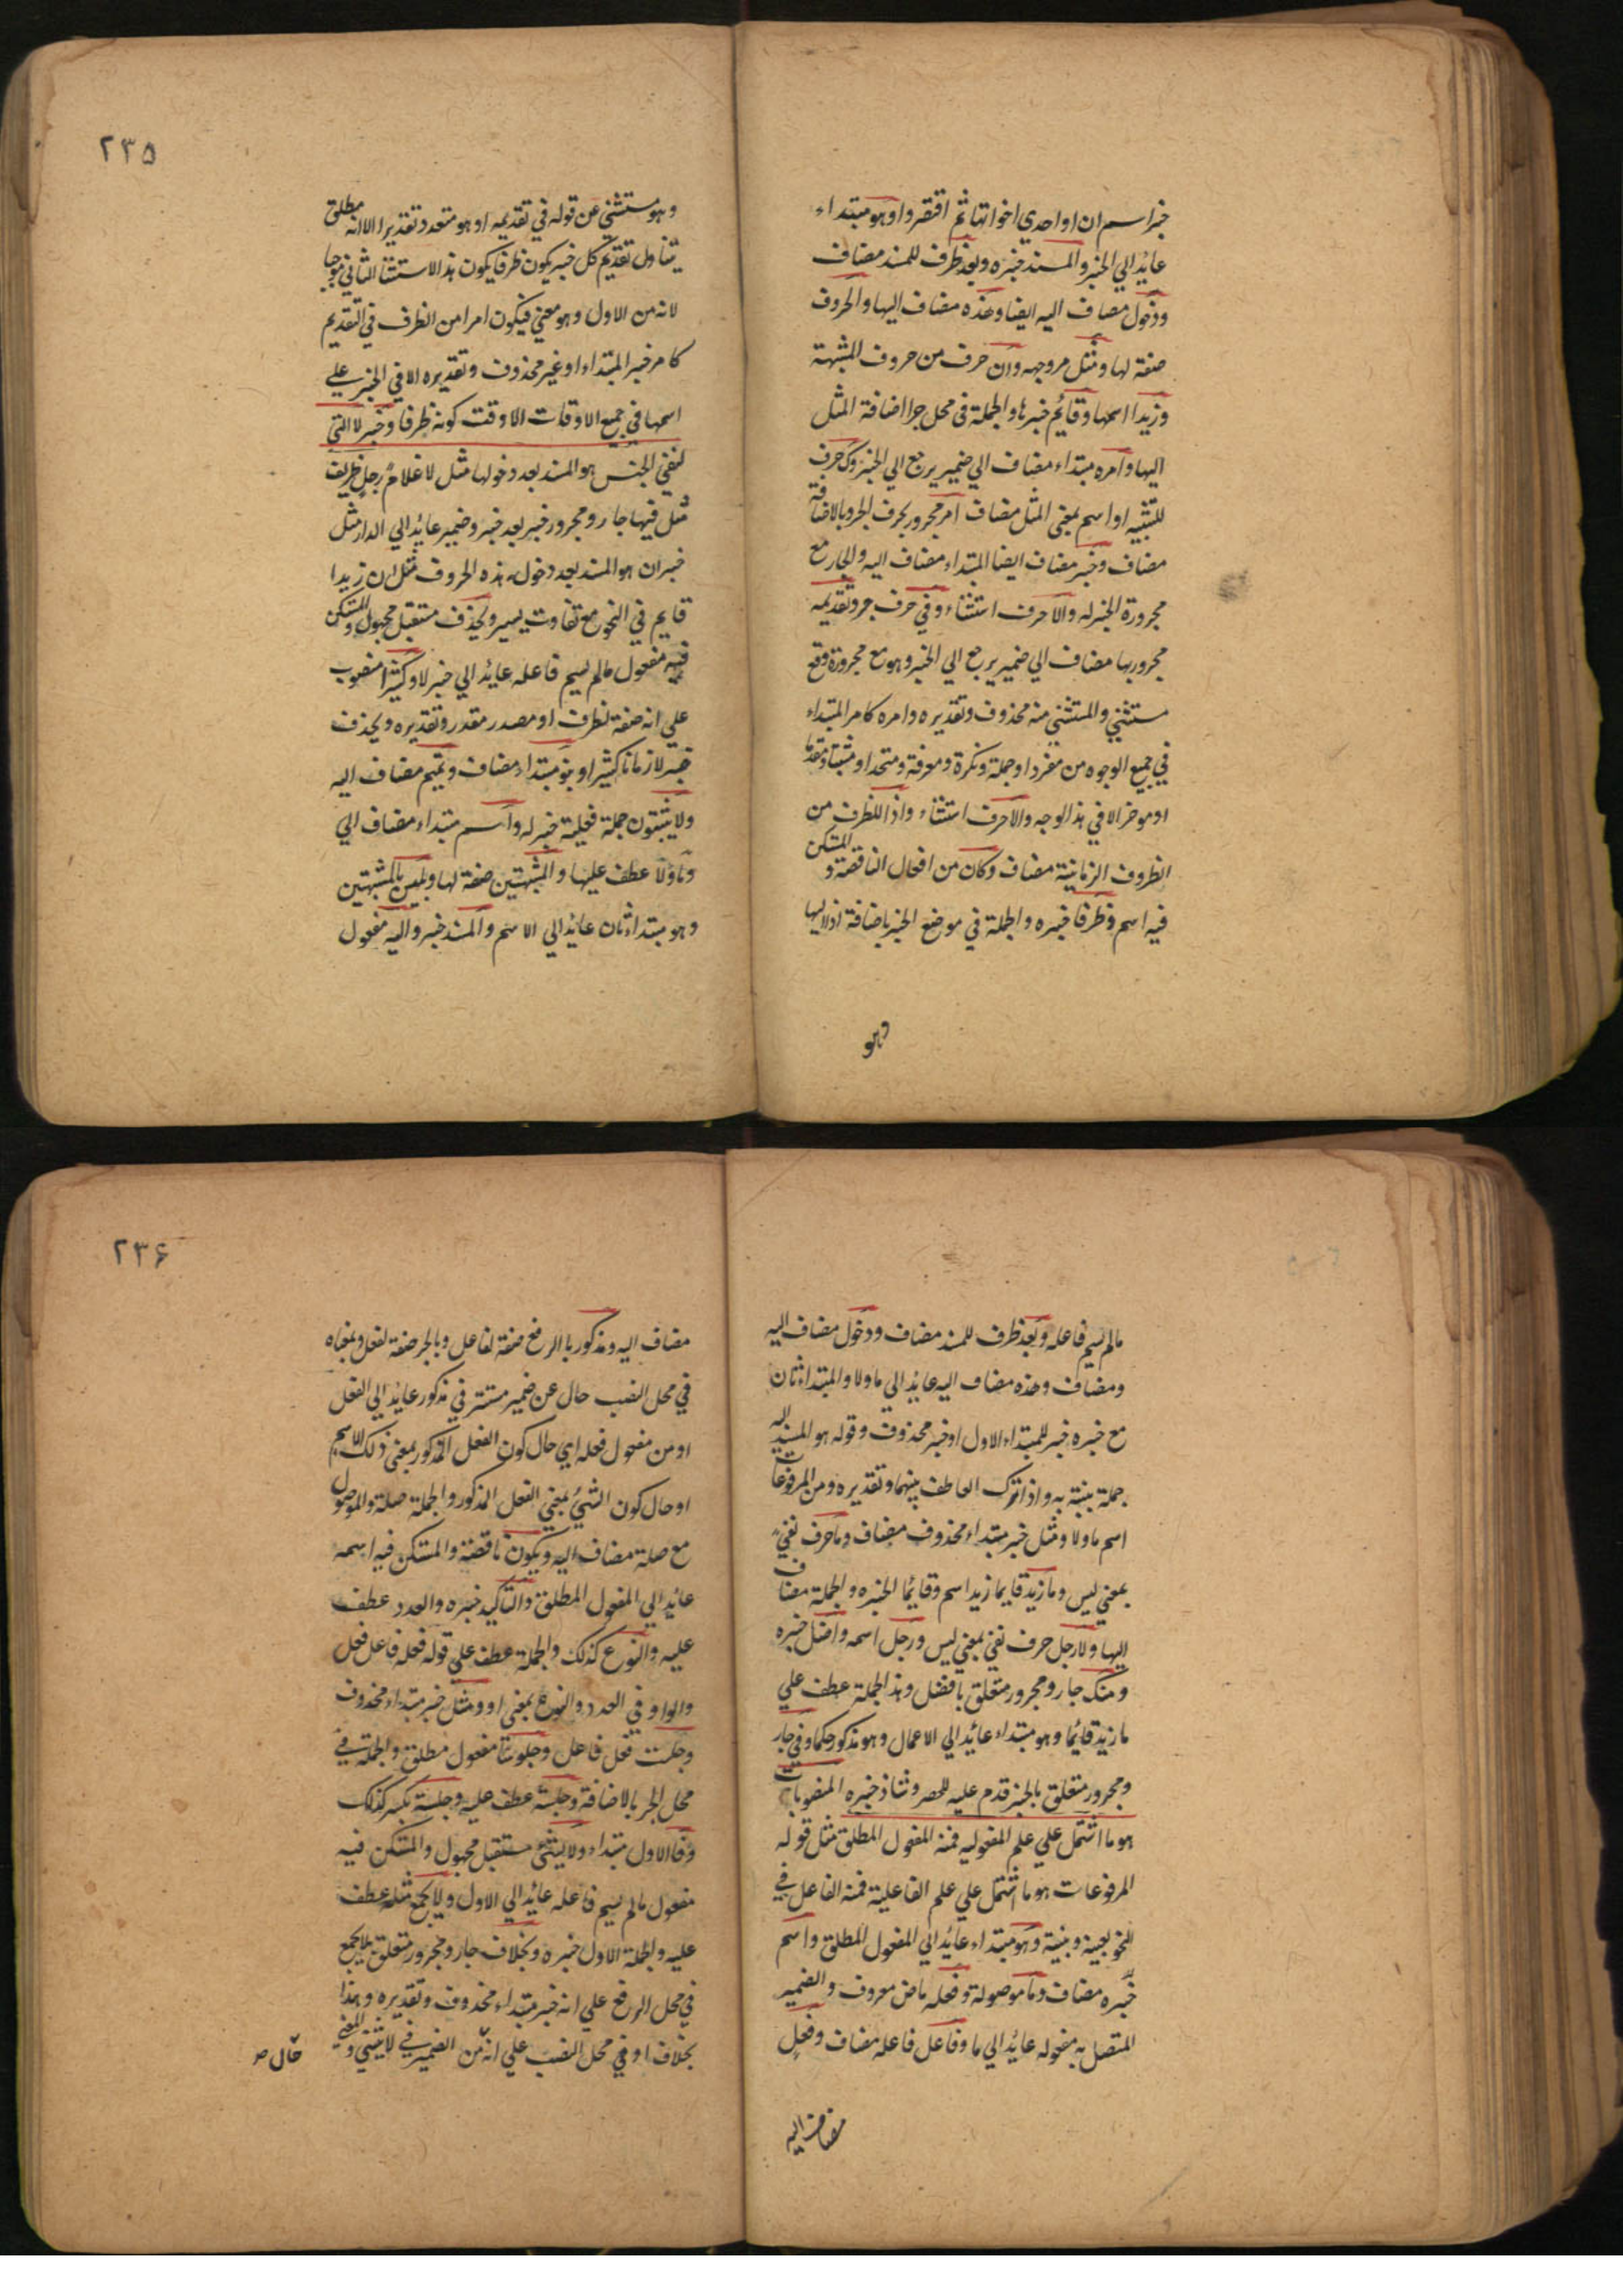 خبر اسم ان او احدي اخواتها ثم اقتصروا وهو مبتداء
عايد الي الخبر والمسند خبره وبعد ظرف للمسند مضاف
ودخول مضاف اليه ايضا وهذه مضاف اليها والحروف
صفة لها ومثل مر وجهه وان حرف من حروف المشبهة
وزيدا اسمها وقائم خبرها والجملة في محل جر اضافة المثل
اليها وامره مبتداء مضاف الي ضمير يرجع الي الخبر وك حرف
للتشبيه او اسم بمعني المثل مضاف امر مجرور بحرف الجر وبالاضافة
مضاف وخبر مضاف ايضا المبتداء مضاف اليه والجار مع
مجروره الخبر له والا حرف استثناء وفي حرف جر وتقديمه
مجرور بها مضاف الي ضمير يرجع الي الخبر وهو مع مجروره وقع
مستثني والمستثني منه محذوف وتقديره وامره كامر المبتداء
في جميع الوجوه من مفرد او جملة ونكرة ومعرفة ومتحدا ومثبتا ومقدما
او موخرا الا في هذا الوجه والا حرف استثناء واذا للظرف من
الظروف الزمانية مضاف وكان من افعال الناقصة والمستكن
فيه اسم وظرفا خبره والجملة في موضع الجر باضافة اذا اليها
وهو
٢٣٥
وهو مستثني عن قوله في تقديمه او هو متعدد تقديرا الا انه مطلق
يتناول تقديم كل خبر يكون ظرفا يكون هذا الاستثنا الثاني موجبا
لانه من الاول وهو معني فيكون امرا من الظرف في التقديم
كامر خبر المبتداء او غير محذوف وتقديره الا في الخبر علي
اسمها في جميع الاوقات الا وقت كونه ظرفا وخبر لا التي
لنفي الجنس هو المسند بعد دخولها مثل لا غلام رجل ظريف
مثل فيها جار ومجرور خبر بعد خبر وضمير عائد الي الدار مثل
خبر ان هو المسند بعد دخول هذه الحروف مثل ان زيدا
قايم في النحو مع تفاوت يسير ويحذف مستقبل مجهول والمستكن
فيه مفعول مالم يسم فاعله عايد الي خبر لا وكثيرا منصوب
علي انه صفة لظرف او مصدر مقدر وتقديره ويحذف
خبر لا زمانا كثيرا وبنو مبتداء مضاف وتميم مضاف اليه
ولا يثبتون جملة فعلية خبر له واسم مبتداء مضاف الي
ما ولا عطف عليها والمشبهتين صفة لها وبليس بالمشبهتين
وهو مبتداء ثان عايد الي الاسم والمسند خبر واليه مفعول
مالم يسم فاعله وبعد ظرف للمسند مضاف ودخول مضاف اليه
ومضاف وهذه مضاف اليه عايد الي ما ولا والمبتداء ثان
مع خبره خبر للمبتداء الاول او خبر محذوف وقوله هو المسند اليه
جملة مبينة به واذا ترك العاطف بينهما وتقديره ومن المرفوعات
اسم ما ولا ومثل خبر مبتداء محذوف مضاف وما حرف نفي
بمعني ليس وما زيد قايما زيد اسم وقائما الخبره والجملة مضاف
اليها ولا رجل حرف نفي بمعني ليس ورجل اسمه وافضل خبره
ومنك جار ومجرور متعلق بافضل وهذا الجملة عطف علي
ما زيد قائما وهو مبتداء عائد الي الاعمال وهو مذكور حكما وفي جار
ومجرور متعلق بالخبر قدم عليه للحصر وشاذ خبره المنصوبات
هو ما اشتمل علي علم المفعوليه فمنه المفعول المطلق مثل قوله
المرفوعات هو ما اشتمل علي علم الفاعلية فمنه الفاعل في
النحو بعينه وهو مبتداء عائد الي المفعول المطلق واسم
خبره مضاف وما موصولة وفعله ماض معروف والضمير
المتصل به مفعوله عائد الي ما وفاعل فاعله مضاف وفعل
مضاف اليه
٢٣۶
مضاف اليه ومذكور بالرفع صفة لفاعل وبالجر صفة لفعل وبمعناه
في محل النصب حال عن ضمير مستتر في مذكور عايد الي الفعل
او من مفعول فعله اي حال كون الفعل المذكور بمعني ذلك الاسم
او حال كون الشئ بمعني الفعل المذكور والجملة صلة والموصول
مع صلة مضاف اليه ويكون ناقصة والمستكن فيه اسمه
عائد الي المفعول المطلق والتاكيد خبره والعدد عطف
عليه والنوع كذلك والجملة عطف علي قوله فعله فاعل فعل
والواو في العدد والنوع بمعني او ومثل خبر مبتداء محذوف
وجلست فعل فاعل وجلوسا مفعول مطلق والجملة في
محل الجر بالاضافة وجلسة عطف عليه وجلسة بكسر كذلك
وفالاول مبتداء ولا يثني مستقبل مجهول والمستكن فيه
مفعول مالم يسم فاعله عائد الي الاول ولا يجمع مثله عطف
عليه والجملة الاول خبره وبخلاف جار ومجرور متعلق بلا يجمع
في محل الرفع علي انه خبر مبتداء محذوف وتقديره وهذا
بخلاف او في محل النصب علي انه من الضمير في لا يثني والمعني
حال صح